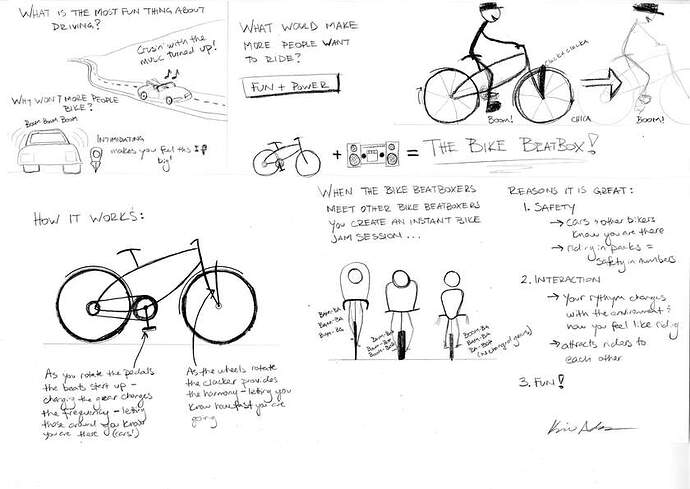 WHAT IS THE MOST FUN THING ABOUT
DRIVING?
Crusin' with the
music turned up!
WHY WON'T MORE PEOPLE
BIKE?
BOM BOM BOOM
INTIMIDATING
makes you feel this
big!
WHAT WOULD MAKE
MORE PEOPLE WANT
TO RIDE?
FUN + POWER
BOOM!
CHICA
BOOM!
+
= THE BIKE BEATBOX!
HOW IT WORKS:
As you rotate the pedals
the beats start up -
changing the gear changes
the frequency - letting
those around you know
you are there (cars!)
As the wheels rotate
the clacker provides
the harmony - letting you
know how fast you are
going
WHEN THE BIKE BEATBOXERS
MEET OTHER BIKE BEATBOXERS
YOU CREATE AN INSTANT BIKE
JAM SESSION ...
BAM-BA
BAM-BA
BAM-BA
BAM-BA
BAM-BA
BOOM-BA
BAM-BA
REASONS IT IS GREAT:
1. SAFETY
→ cars + other bikers
know you are there
→ riding in packs =
safety in numbers
2. INTERACTION
→ Your rythym changes
with the environment &
how you feel like riding
→ attracts riders to
each other
3. FUN!